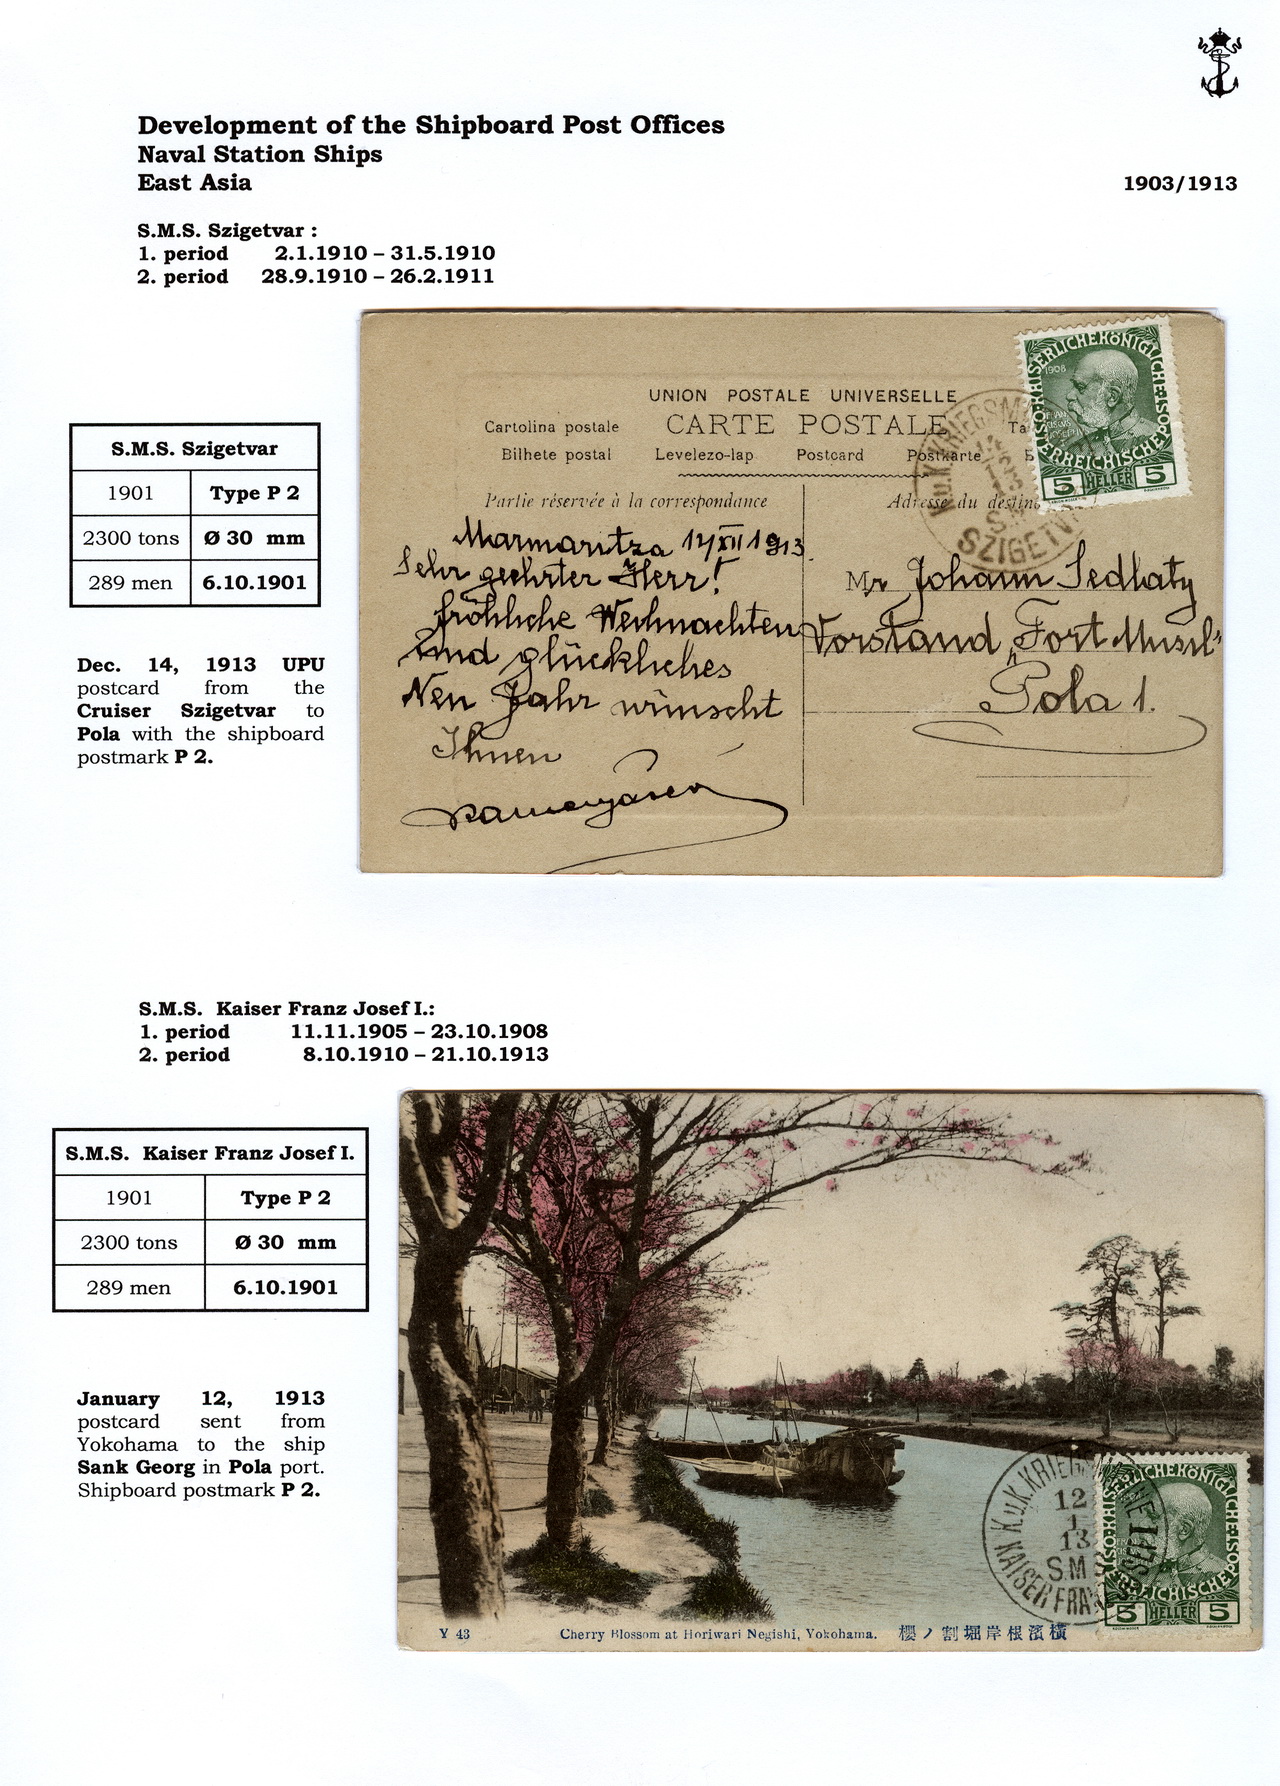 Development of the Shipboard Post Offices
Naval Station Ships
East Asia
1903/1913
S.M.S. Szigetvar :
1. period 2.1.1910 – 31.5.1910
2. period 28.9.1910 – 26.2.1911
S.M.S. Szigetvar
1901 Type P 2
2300 tons Ø 30 mm
289 men 6.10.1901
Dec. 14, 1913 UPU
postcard from the
Cruiser Szigetvar to
Pola with the shipboard
postmark P 2.
UNION POSTALE UNIVERSELLE
CARTE POSTALE
Cartolina postale
Bilhete postal Levelezo-lap Postcard Postkarte
Partie réservée à la correspondance
Adresse du destin
1908
KAISERLICHE KÖNIGLICHE
ÖSTERREICHISCHE POST
5 HELLER 5
K.u.K. KRIEGSM
14
13
SZIGETV
Marmaritza 14 XII 1913.
Sehr geehrter Herr!
fröhliche Weihnachten
und glückliches
Neu Jahr wünscht
Ihnen
Mr Johann Sedlaty
Vorstand Fort Musil
Pola 1.
S.M.S. Kaiser Franz Josef I.:
1. period 11.11.1905 – 23.10.1908
2. period 8.10.1910 – 21.10.1913
S.M.S. Kaiser Franz Josef I.
1901 Type P 2
2300 tons Ø 30 mm
289 men 6.10.1901
January 12, 1913
postcard sent from
Yokohama to the ship
Sank Georg in Pola port.
Shipboard postmark P 2.
K.u.K. KRIEGS
12
1
13
S.M
KAISER FRA
KAISERLICHE KÖNIGLICHE
ÖSTERREICHISCHE POST
5 HELLER 5
Y 43 Cherry Blossom at Horiwari Negishi, Yokohama. 櫻ノ割堀岸根濱横